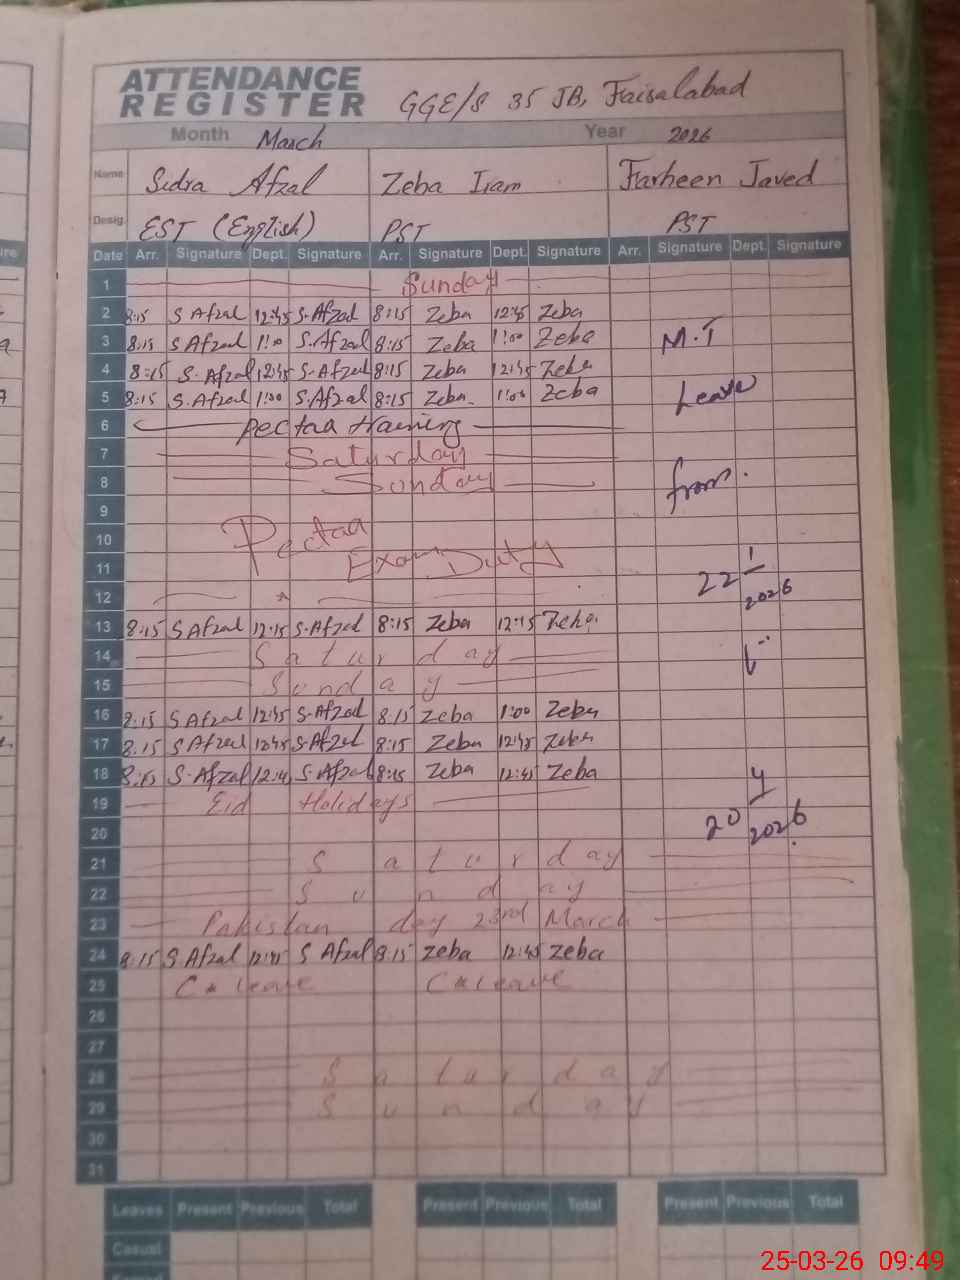 ATTENDANCE
REGISTER GGE/S 35 JB, Faisalabad
Month March Year 2026
Name Sidra Afzal Zeba Iram Farheen Javed
Desig. EST (English) PST PST
Date Arr. Signature Dept. Signature Arr. Signature Dept. Signature Arr. Signature Dept. Signature
1 Sunday
2 8:15 S Afzal 12:45 S. Afzal 8:15 Zeba 12:45 Zeba
3 8:15 S Afzal 1:00 S. Afzal 8:15 Zeba 1:00 Zeba M.T
4 8:15 S. Afzal 12:45 S. Afzal 8:15 Zeba 12:45 Zeba
5 8:15 S. Afzal 1:00 S. Afzal 8:15 Zeba. 1:00 Zeba Leave
6 Pectaa training
7 Saturday
8 Sunday from.
9
10 Pectaa
11 Exam Duty 22 1
12 2026
13 8:15 S Afzal 12:15 S. Afzal 8:15 Zeba 12:15 Zeba
14 Saturday
15 Sunday
16 8:15 S Afzal 12:45 S. Afzal 8:15 Zeba 1:00 Zeba
17 8:15 S Afzal 12:45 S. Afzal 8:15 Zeba 12:45 Zeba
18 8:15 S. Afzal 12:45 S. Afzal 8:15 Zeba 12:45 Zeba
19 Eid Holidays
20 20 2026
21 Saturday
22 Sunday
23 Pakistan day 23rd March
24 8:15 S Afzal 12:45 S Afzal 8:15 Zeba 12:45 Zeba
25 C leave C leave
26
27
28 Saturday
29 Sunday
30
31
Leaves Present Previous Total Present Previous Total Present Previous Total
Casual
25-03-26 09:49